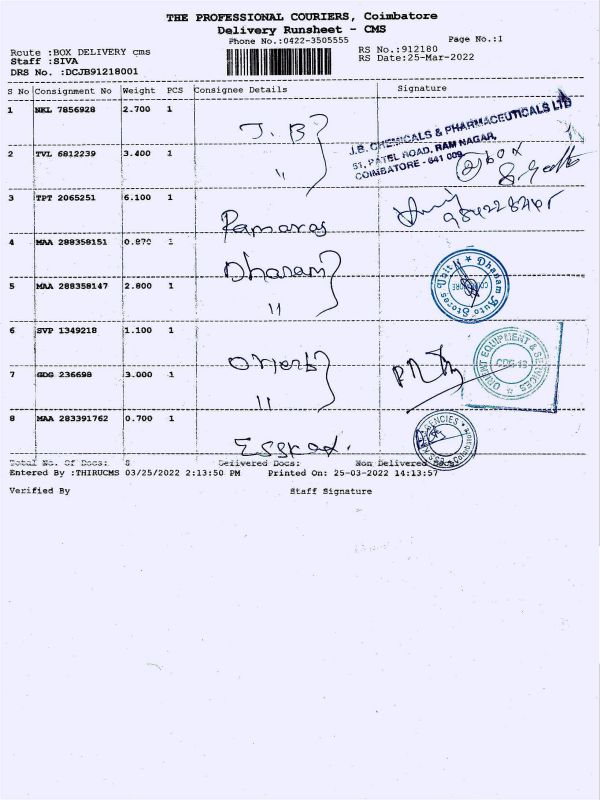 THE PROFESSIONAL COURIERS, Coimbatore
Delivery Runsheet - CMS
Phone No.:0422-3505555 Page No.:1
Route :BOX DELIVERY cms RS No.:912180
Staff :SIVA RS Date:25-Mar-2022
DRS No. :DCJB91218001
S No Consignment No Weight PCS Consignee Details Signature
1 NKL 7856928 2.700 1
J.B
J.B. CHEMICALS & PHARMACEUTICALS LTD
51, PATEL ROAD, RAM NAGAR,
COIMBATORE - 641 009
2 TVL 6812239 3.400 1 "
2 box
3 TPT 2065251 6.100 1
Ramaraj
4 MAA 288358151 0.870 1
Dhanam
Dhanam Auto Stores Unit
5 MAA 288358147 2.800 1
"
6 SVP 1349218 1.100 1
Orient
ORIENT EQUIPMENT & SERVICES
7 GDG 236698 3.000 1
"
8 MAA 283391762 0.700 1
AGENCIES
Total No. Of Docs: 8 Delivered Docs: Non Delivered Docs:
Entered By :THIRUCMS 03/25/2022 2:13:50 PM Printed On: 25-03-2022 14:13:57
Verified By Staff Signature